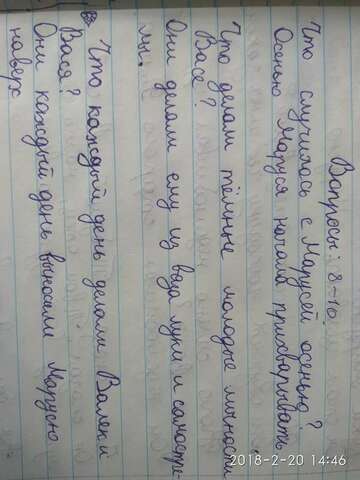 Вопросы: 8-10.
Что случилось с Марусей осенью?
Осенью Маруся начала прихварывать
Что делали тёмные молодые личности
Васе?
Они делали ему из вяза луки и самостре-
лы.
Что каждый день делали Валек и
Вася?
Они каждый день выносили Марусю
наверх
2018-2-20 14:46